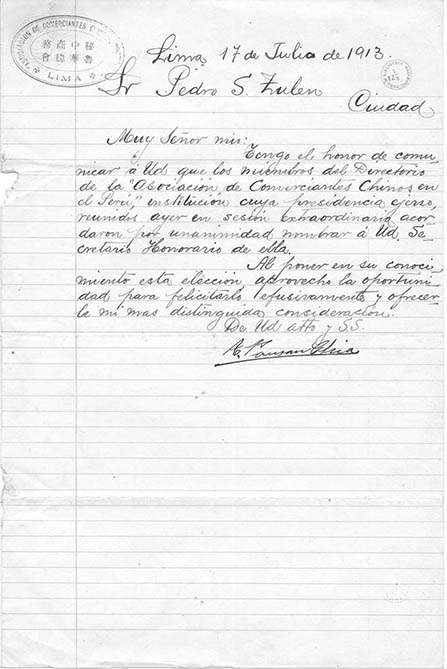 ASOCIACION DE COMERCIANTES
務商中秘
會總華魯
LIMA
Lima, 17 de Julio de 1913.
Sr Pedro S. Zulen
Ciudad
Muy Señor mio:
Tengo el honor de comu-
nicar á Ud que los miembros del Directorio
de la "Asociación de Comerciantes Chinos en
el Perú," institución cuya presidencia ejerzo,
reunidos ayer en sesión extraordinaria acor-
daron por unanimidad nombrar á Ud. Se-
cretario Honorario de ella.
Al poner en su conoci-
miento esta elección, aprovecho la oportuni-
dad para felicitarlo efusivamente y ofrecer
le mi mas distinguida consideración.
De Ud atto y S.S.